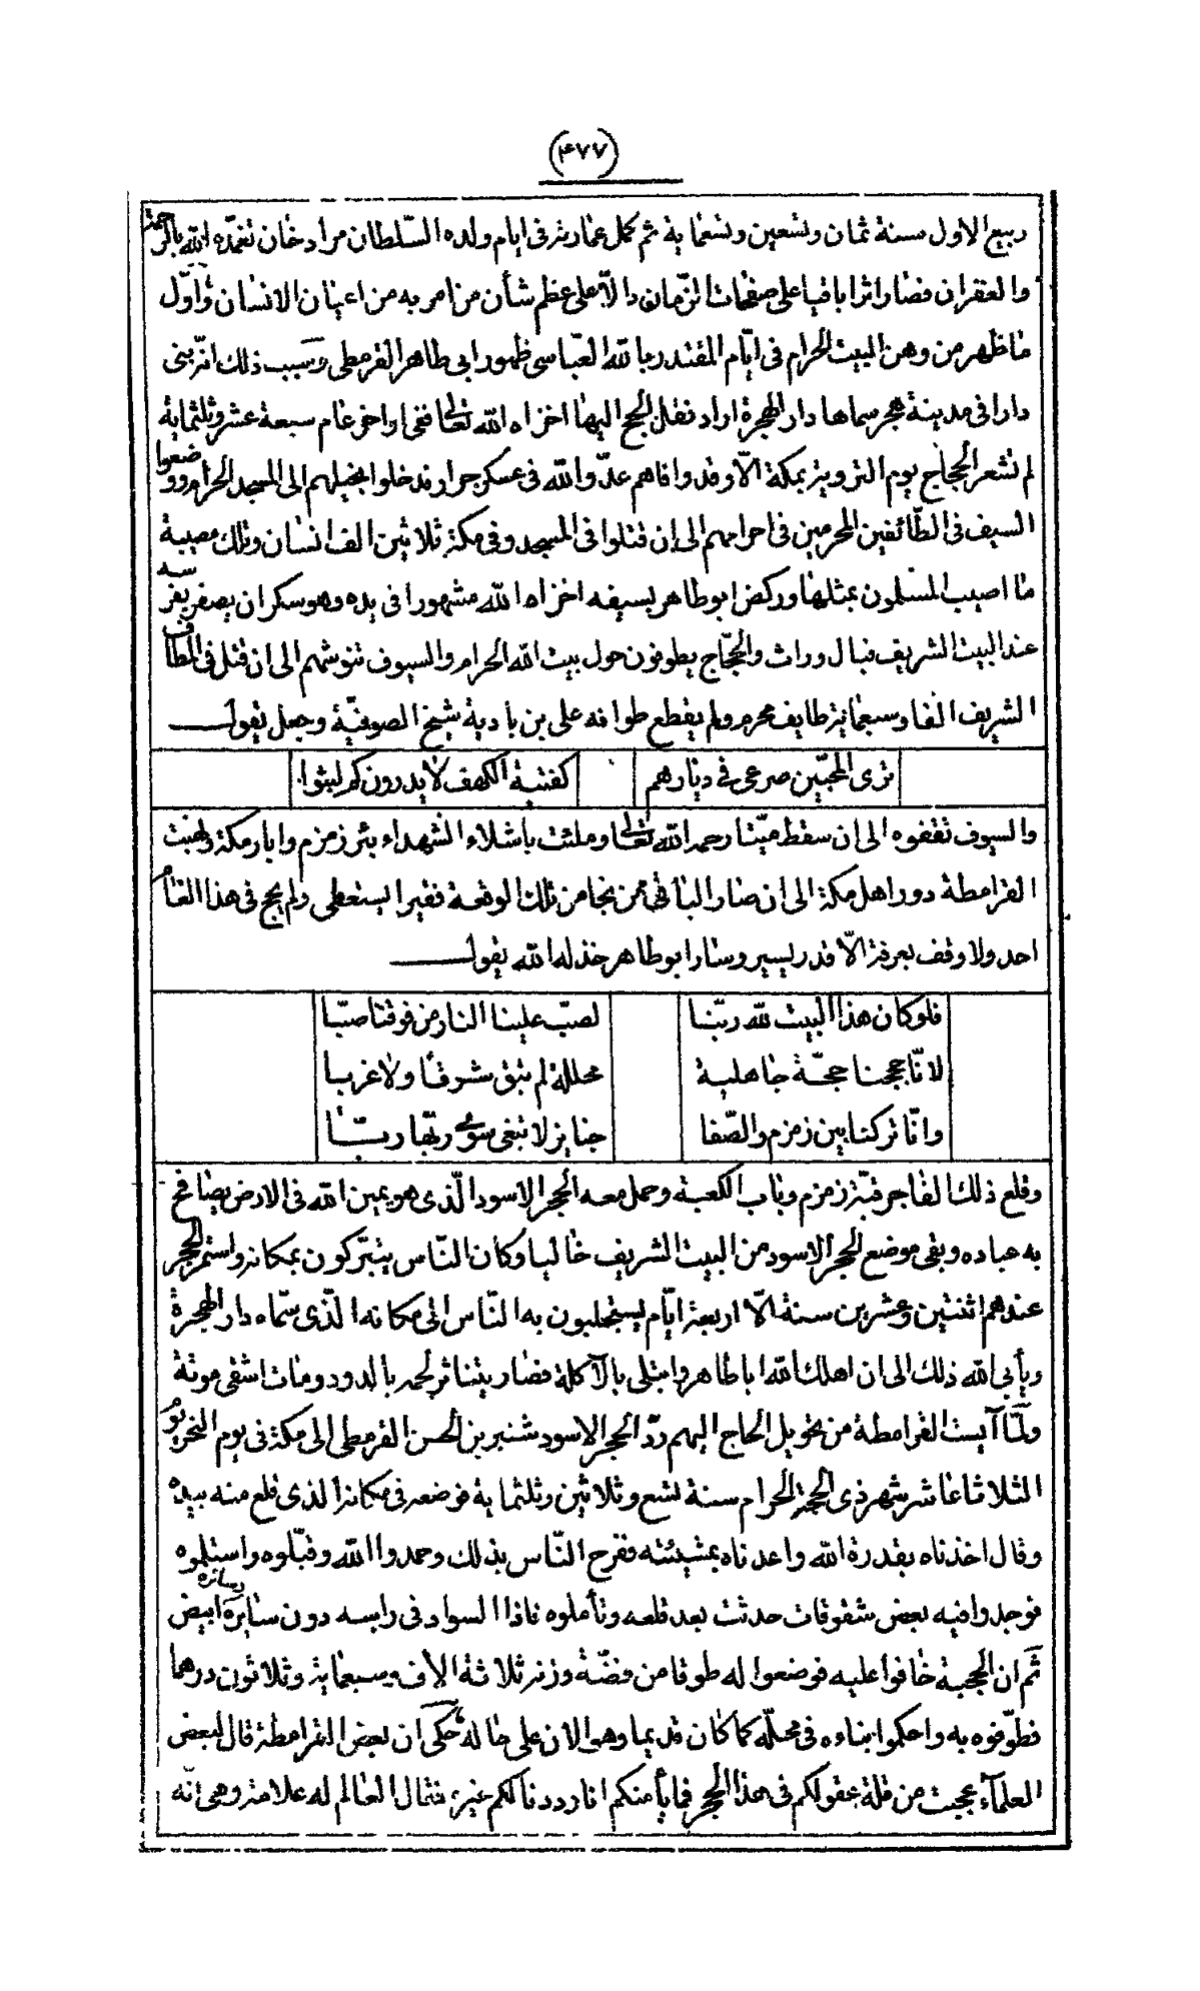 (۴۷۷)
ربيع الاول سنة ثمان وتسعين وتسعماية ثم كمل عمارته فى ايام ولده السّلطان مراد خان تغمّده الله بالرحمة
والغفران فصار اثرا باقيا على صفحات الزّمان دالاّ على عظم شأن من امر به من اعيان الانسان واوّل
ما ظهر من وهن البيت الحرام فى ايّام المقتدر بالله العبّاسى ظهور ابى طاهر القرمطى وسبب ذلك انّه بنى
دارا فى مدينة هجر سماها دار الهجرة اراد نقل الحج اليها اخزاه الله تعالى ففى اواخر عام سبعة عشر وثلثماية
لم تشعر الحجاج يوم التروية بمكة الاّ وقد وافاهم عدوّ الله فى عسكر جرار فدخلوا بخيلهم الى المسجد الحرام ووضعوا
السيف فى الطّائفين المحرمين فى احرامهم الى ان قتلوا فى المسجد وفى مكة ثلاثين الف انسان وتلك مصيبة
ما اصيب المسلمون بمثلها وركض ابو طاهر بسيفه اخزاه الله مشهورا فى يده وهو سكران يصفر بفرسه
عند البيت الشريف فبال وراث والحجّاج يطوفون حول بيت الله الحرام والسيوف تنوشهم الى ان قتل فى المطاف
الشريف الفا وسبعماية طايف محرم ولم يقطع طوافه على بن بادية شيخ الصوفيّة وجعل يقول
ترى المحبّين صرعى فى ديارهم كفتية الكهف لا يدرون كم لبثوا
والسيوف تقفوه الى ان سقط ميّتا رحمه الله تعالى وملئت باشلاء الشهداء بئر زمزم وابار مكة ونهبت
القرامطة دور اهل مكة الى ان صار الباقى ممن نجا من تلك الوقعة فقيرا يستعطى ولم يحج فى هذا العام
احد ولا وقف بعرفة الاّ قدر يسير وسار ابو طاهر خذله الله يقول
فلو كان هذا البيت لله ربّنا لصبّ علينا النار من فوقنا صبّا
لانّا حججنا حجّة جاهلية محللة لم تبق شرقا ولا غربا
وانّا تركنا بين زمزم والصّفا جنايز لا تبغى سوى ربّها ربّا
وقلع ذلك الفاجر قبّة زمزم وباب الكعبة وحمل معه الحجر الاسود الّذى هو يمين الله فى الارض يصافح
به عباده وبقى موضع الحجر الاسود من البيت الشريف خاليا وكان النّاس يتبرّكون بمكانه واستمر الحجر
عندهم اثنتين وعشرين سنة الاّ اربعة ايّام يستجلبون به النّاس الى مكانه الّذى سمّاه دار الهجرة
ويأبى الله ذلك الى ان اهلك الله ابا طاهر وابتلى بالآكلة فصار يتناثر لحمه بالدود ومات اشقى موتة
ولمّا آيست القرامطة من تحويل الحاج اليهم ردّ الحجر الاسود شنبر بن الحسن القرمطى الى مكة فى يوم النحر يوم
الثلاثا عاشر شهر ذى الحجة الحرام سنة تسع وثلاثين وثلثماية فوضعه فى مكانه الذى قلع منه بيده
وقال اخذناه بقدرة الله واعدناه بمشيئته ففرح النّاس بذلك وحمدوا الله وقبّلوه واستلموه
فوجدوا فيه بعض شقوقات حدثت بعد قلعه وتأملوه فاذا السواد فى راسه دون سايره ابيض
ثم ان الحجبة خافوا عليه فوضعوا له طوقا من فضّة وزنه ثلاثة الاف وسبعماية وثلاثون درهما
فطوّقوه به واحكموا بناءه فى محلّه كما كان قديما وهو الان على حاله حكى ان بعض القرامطة قال لبعض
العلمآء عجبت من قلة عقولكم فى هذا الحجر فما يأمنكم انا رددنا لكم غيره فقال العالم له علامة وهى انّه